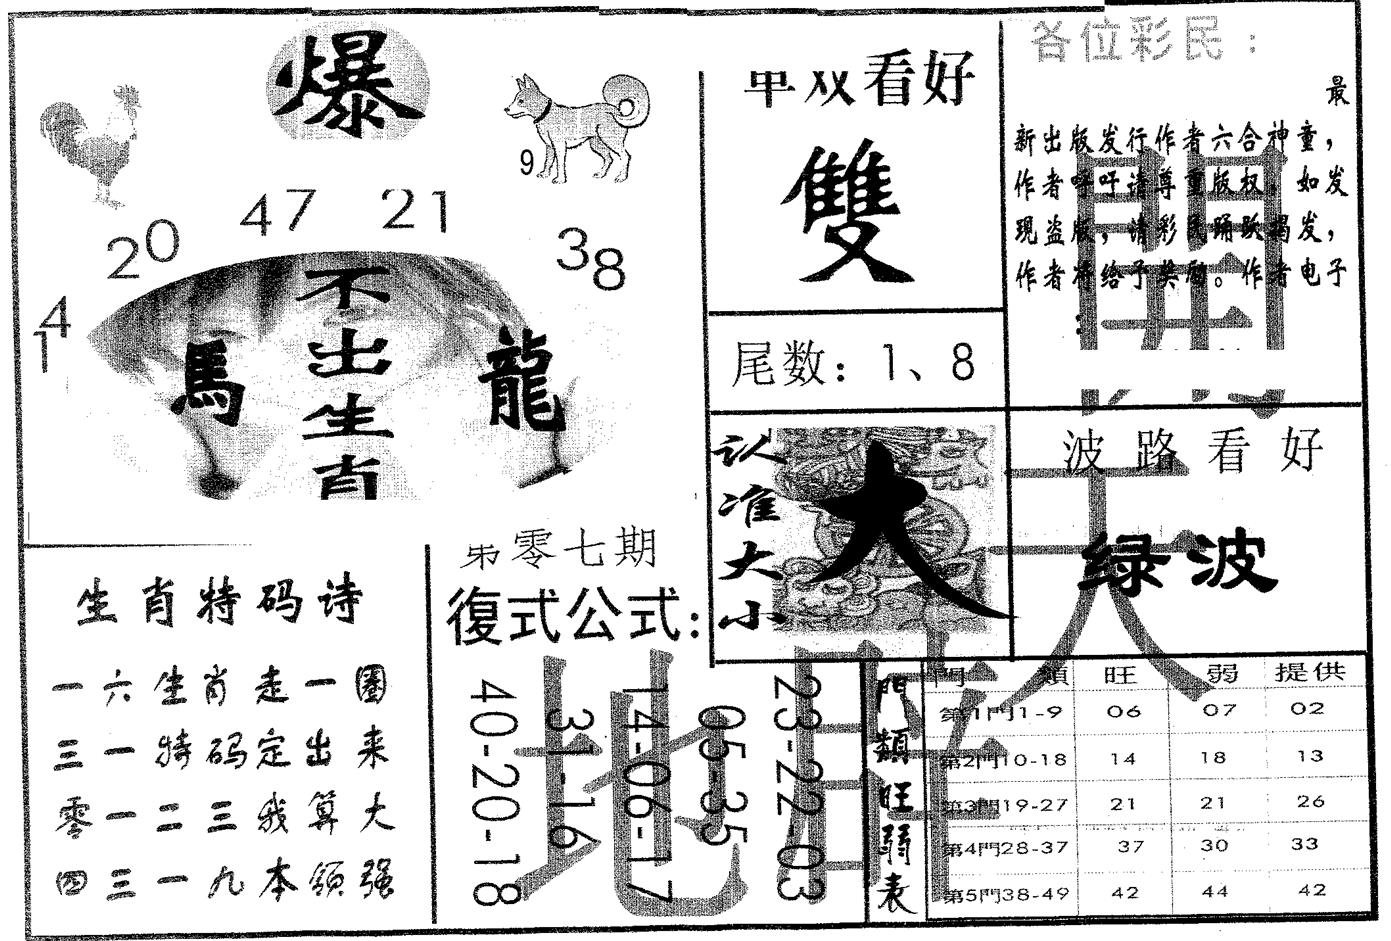 爆
9
47 21
20 38
4
1
不出生肖
馬 龍
单双看好
雙
尾数：1、8
认准大小
大
各位彩民：
最
新出版发行作者六合神童，
作者呼吁请尊重版权。如发
现盗版，请彩民踊跃揭发，
作者将给予奖励。作者电子
:
波路看好
绿波
生肖特码诗
一六生肖走一圈
三一特码定出来
零一二三我算大
四三一九本领强
第零七期
復式公式:
23-22-03
05-35
14-06-17
31-16
40-20-18
門類旺弱表
門類 旺 弱 提供
第1門1-9 06 07 02
第2門10-18 14 18 13
第3門19-27 21 21 26
第4門28-37 37 30 33
第5門38-49 42 44 42